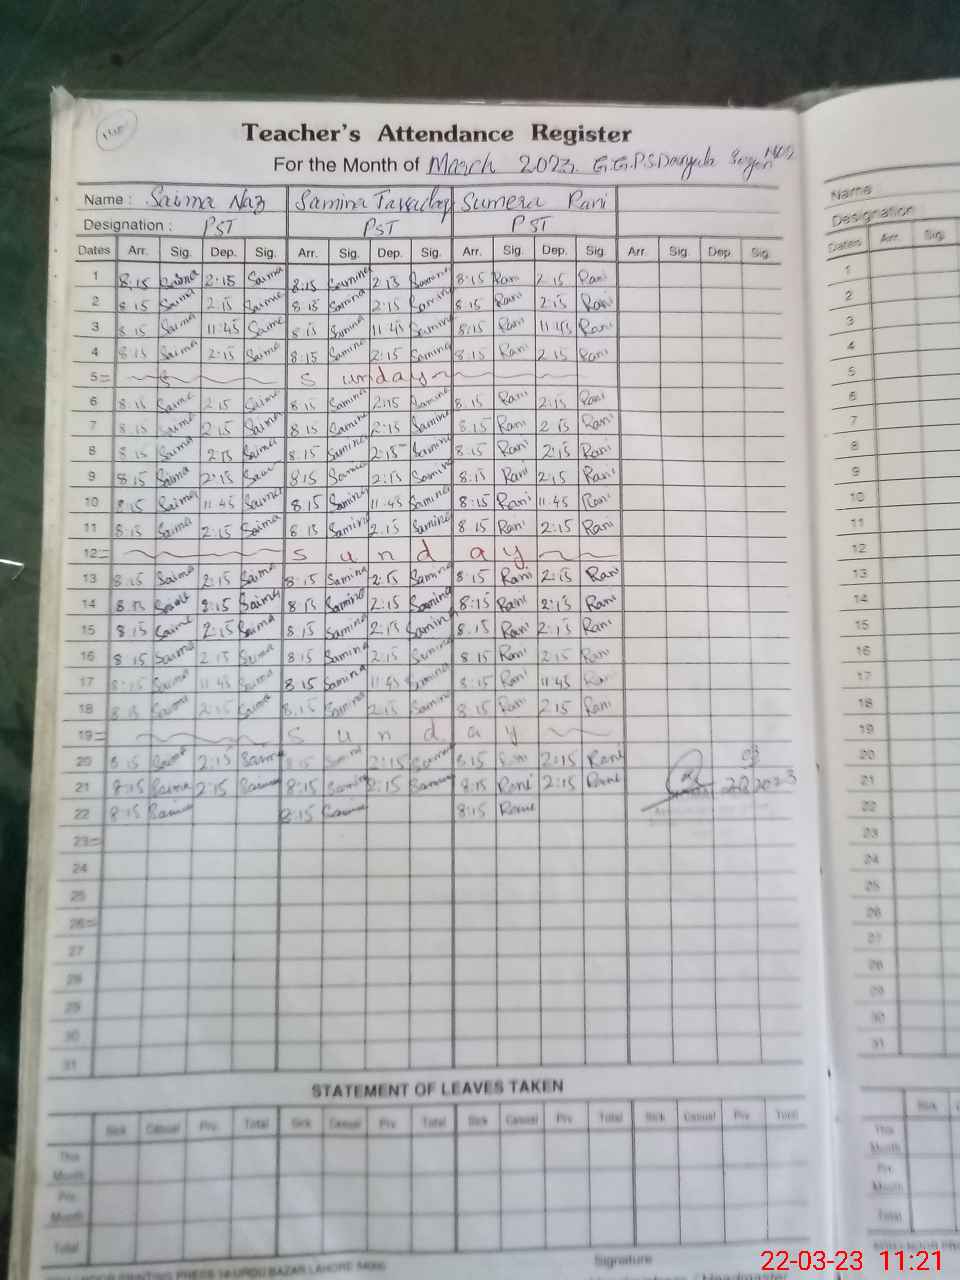 Teacher's Attendance Register
For the Month of March 2023. G.G.P.S
Name : Saima Naz Samina Sumera Rani
Designation : PST PST PST
Dates Arr. Sig. Dep. Sig. Arr. Sig. Dep. Sig. Arr. Sig. Dep. Sig. Arr. Sig. Dep. Sig.
1 8:15 Saima 2:15 Saima 8:15 Samina 2:15 Samina 8:15 Rani 2:15 Rani
2 8:15 Saima 2:15 Saima 8:15 Samina 2:15 Samina 8:15 Rani 2:15 Rani
3 8:15 Saima 11:45 Saima 8:15 Samina 11:45 Samina 8:15 Rani 11:45 Rani
4 8:15 Saima 2:15 Saima 8:15 Samina 2:15 Samina 8:15 Rani 2:15 Rani
5= Sunday
6 8:15 Saima 2:15 Saima 8:15 Samina 2:15 Samina 8:15 Rani 2:15 Rani
7 8:15 Saima 2:15 Saima 8:15 Samina 2:15 Samina 8:15 Rani 2:15 Rani
8 8:15 Saima 2:15 Saima 8:15 Samina 2:15 Samina 8:15 Rani 2:15 Rani
9 8:15 Saima 2:15 Saima 8:15 Samina 2:15 Samina 8:15 Rani 2:15 Rani
10 8:15 Saima 11:45 Saima 8:15 Samina 11:45 Samina 8:15 Rani 11:45 Rani
11 8:15 Saima 2:15 Saima 8:15 Samina 2:15 Samina 8:15 Rani 2:15 Rani
12= Sunday
13 8:15 Saima 2:15 Saima 8:15 Samina 2:15 Samina 8:15 Rani 2:15 Rani
14 8:15 Saima 2:15 Saima 8:15 Samina 2:15 Samina 8:15 Rani 2:15 Rani
15 8:15 Saima 2:15 Saima 8:15 Samina 2:15 Samina 8:15 Rani 2:15 Rani
16 8:15 Saima 2:15 Saima 8:15 Samina 2:15 Samina 8:15 Rani 2:15 Rani
17 8:15 Saima 11:45 Saima 8:15 Samina 11:45 Samina 8:15 Rani 11:45 Rani
18 8:15 Saima 2:15 Saima 8:15 Samina 2:15 Samina 8:15 Rani 2:15 Rani
19= Sunday
20 8:15 Saima 2:15 Saima 8:15 Samina 2:15 Samina 8:15 Rani 2:15 Rani
21 8:15 Saima 2:15 Saima 8:15 Samina 2:15 Samina 8:15 Rani 2:15 Rani
22 8:15 Saima 8:15 Samina 8:15 Rani
23=
24
25
26=
27
28
29
30
31
STATEMENT OF LEAVES TAKEN
Sick Casual Prv. Total Sick Casual Prv. Total Sick Casual Prv. Total Sick Casual Prv. Total
This Month
Prv. Month
Total
PRINTING PRESS URDU BAZAR LAHORE
Signature
Name
Designation
Dates Arr. Sig.
1
2
3
4
5
6
7
8
9
10
11
12
13
14
15
16
17
18
19
20
21
22
23
24
25
26
27
28
29
30
31
Sick
This Month
Prv. Month
Total
22-03-23 11:21